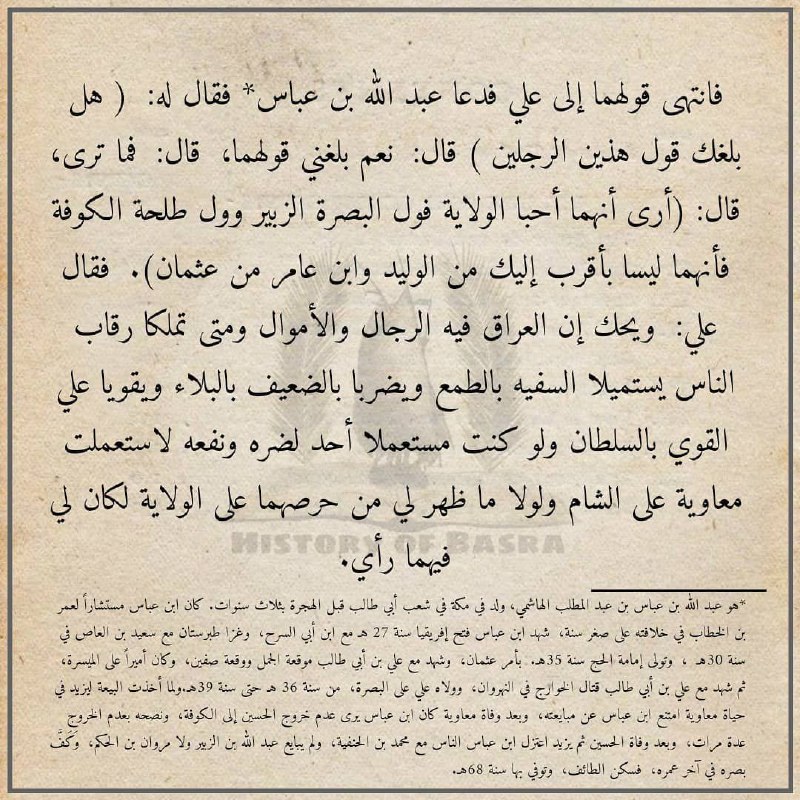 فانتهى قولهما إلى علي فدعا عبد الله بن عباس* فقال له: ( هل
بلغك قول هذين الرجلين ) قال: نعم بلغني قولهما، قال: فما ترى،
قال: (أرى أنهما أحبا الولاية فول البصرة الزبير وول طلحة الكوفة
فأنهما ليسا بأقرب إليك من الوليد وابن عامر من عثمان). فقال
علي: ويحك إن العراق فيه الرجال والأموال ومتى تملكا رقاب
الناس يستميلا السفيه بالطمع ويضربا بالضعيف بالبلاء ويقويا علي
القوي بالسلطان ولو كنت مستعملا أحد لضره ونفعه لاستعملت
معاوية على الشام ولولا ما ظهر لي من حرصهما على الولاية لكان لي
فيهما رأي.
HISTORY OF BASRA
*هو عبد الله بن عباس بن عبد المطلب الهاشمي، ولد في مكة في شعب أبي طالب قبل الهجرة بثلاث سنوات. كان ابن عباس مستشاراً لعمر
بن الخطاب في خلافته على صغر سنة، شهد ابن عباس فتح إفريقيا سنة 27 هـ مع ابن أبي السرح، وغزا طبرستان مع سعيد بن العاص في
سنة 30هـ ، وتولى إمامة الحج سنة 35هـ. بأمر عثمان، وشهد مع علي بن أبي طالب موقعة الجمل ووقعة صفين، وكان أميراً على الميسرة،
ثم شهد مع علي بن أبي طالب قتال الخوارج في النهروان، وولاه علي على البصرة، من سنة 36 هـ حتى سنة 39هـ.ولما أخذت البيعة ليزيد في
حياة معاوية امتنع ابن عباس عن مبايعته، وبعد وفاة معاوية كان ابن عباس يرى عدم خروج الحسين إلى الكوفة، ونصحه بعدم الخروج
عدة مرات، وبعد وفاة الحسين ثم يزيد اعتزل ابن عباس الناس مع محمد بن الحنفية، ولم يبايع عبد الله بن الزبير ولا مروان بن الحكم، وَكَفَّ
بصره في آخر عمره، فسكن الطائف، وتوفي بها سنة 68هـ.